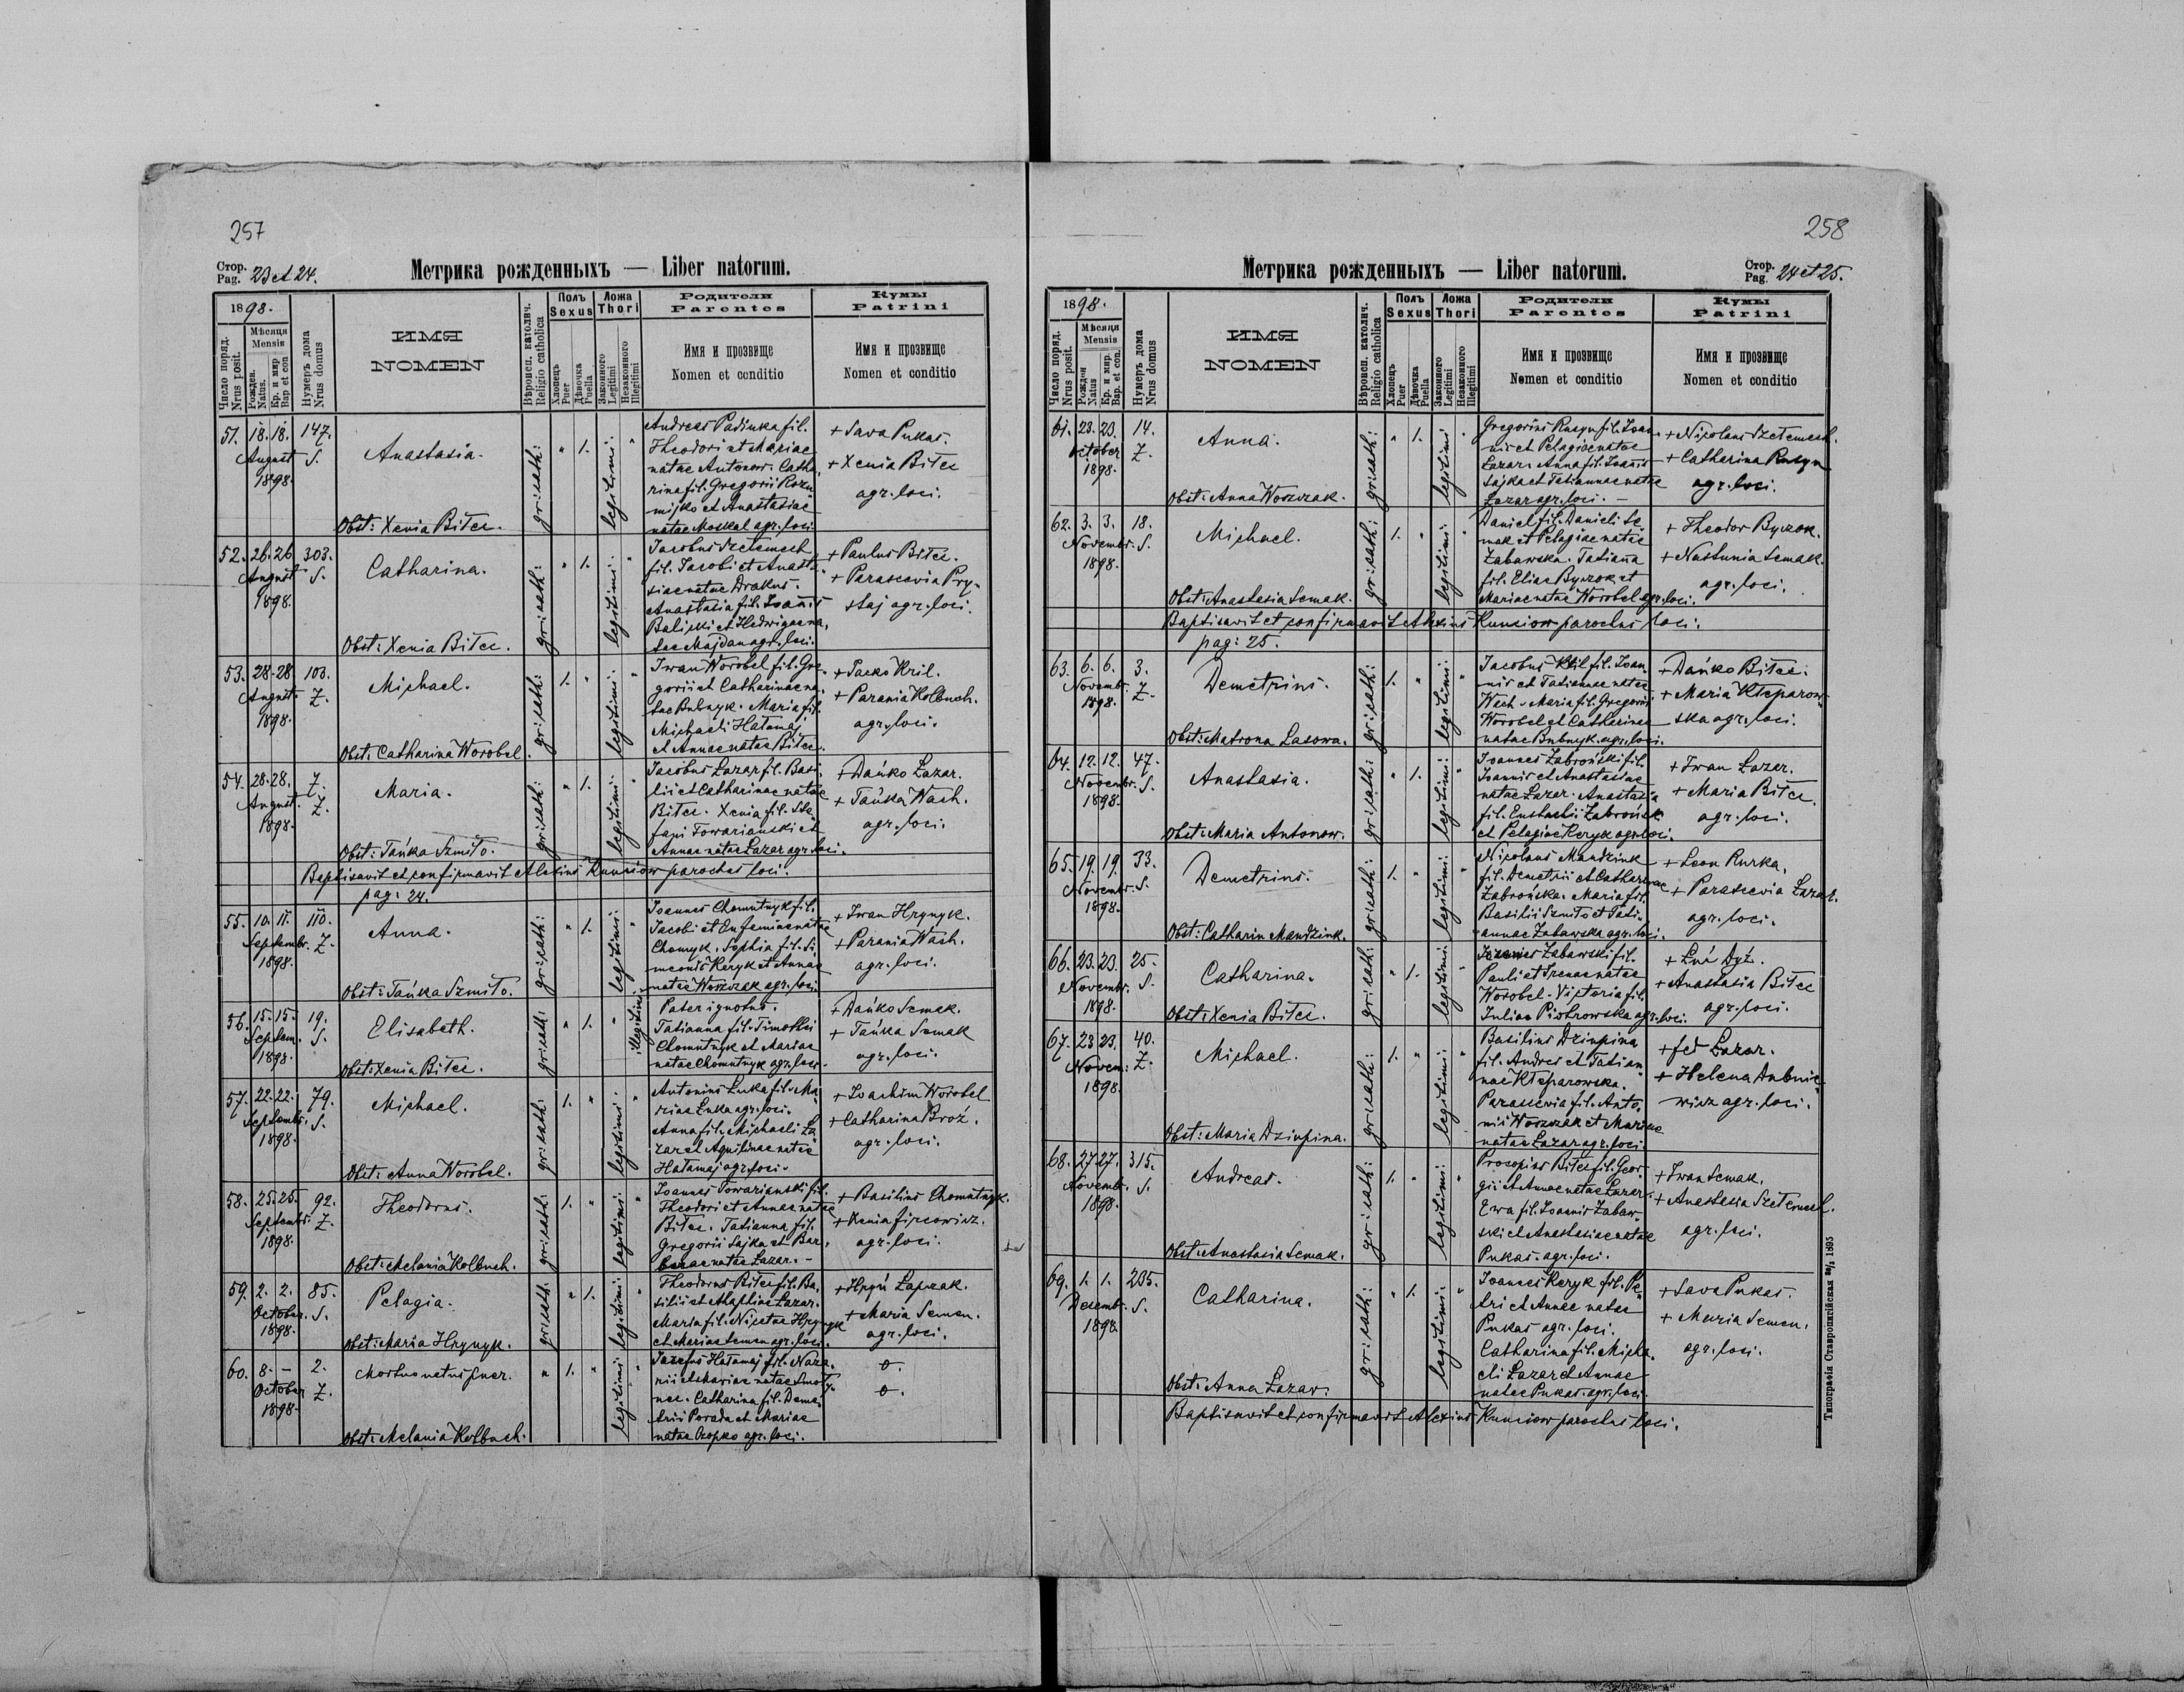 257
Стор.
Pag. 23 et 24.
Метрика рожденныхъ — Liber natorum.
1898.
Число поряд.
Nrus posit.
Мѣсяця
Mensis
Рожден.
Natus.
Кр. и мир
Bap et con
Нумеръ дома
Nrus domus
ИМЯ
NOMEN
Вѣроисп. католич.
Religio catholica
Полъ
Sexus
Хлопець
Puer
Дѣвочка
Puella
Ложа
Thori
Законного
Legitimi
Незаконного
Illegitimi
Родители
Parentes
Имя и прозвище
Nomen et conditio
Кумы
Patrini
Имя и прозвище
Nomen et conditio
51. 18. 18. 147.
August S.
1898.
Anastasia.
Obst: Xenia Bitec.
gr: cath:
" 1.
legitimi: "
Andreas Padinka fil.
Theodori et Mariae
natae Antonow. Catha-
rina fil. Gregorii Rozu
mijko et Anastasiae
natae Moskal agr. loci
+ Sava Pukas.
+ Xenia Bitec
agr. loci.
52. 26. 26 303.
August S.
1898.
Catharina.
Obst: Xenia Bitec.
gr: cath:
" 1.
legitimi: "
Jacobus Szetemech
fil. Jacobi et Anasta-
siae natae Drakus.
Anastasia fil. Joannis
Balicki et Hedwigae na-
tae Majdan agr. loci.
+ Paulus Bitec.
+ Parascevia Pry-
staj agr. loci.
53. 28. 28 103.
August. Z.
1898.
Michael.
Obst: Catharina Worobel.
gr: cath:
1. "
legitimi: "
Iwan Worobel fil. Gre-
gorii et Catharinae na-
tae Bubnyk. Maria fil.
Michaeli Hatamaj
et Annae natae Bitec.
+ Jacko Kril.
+ Parania Kolbuch.
agr. loci.
54. 28. 28. 7.
August. Z.
1898.
Maria.
Obst: Tańka Szmiło.
gr: cath:
" 1.
legitimi: "
Jacobus Lazar fil. Basi-
lii et Catharinae natae
Bitec. Xenia fil. Ste-
fani Towarianski et
Annae natae Lazar agr. loci.
+ Dańko Lazar.
+ Tańka Wach.
agr. loci.
Baptisavit et confirmavit Alexius Kunciów parochus loci.
pag: 24.
55. 10. 11. 110.
Septembr. Z.
1898.
Anna.
Obst: Tańka Szmiło.
gr: cath:
" 1.
legitimi: "
Joannes Chomutnyk fil.
Jacobi et Eufeminae natae
Chomyk. Sophia fil. Si-
meonis Keryk et Annae
natae Woszczak agr. loci
+ Iwan Hrynyk.
+ Parania Wach.
agr. loci.
56. 15. 15. 19.
Septem. S.
1898.
Elisabeth.
Obst: Xenia Bitec.
gr: cath:
" 1.
" illegitimi
Pater ignotus.
Tatianna fil. Timothei
Chomutnyk et Mariae
natae Chomutnyk agr. loci.
+ Dańko Semak.
+ Tańka Semak
agr. loci.
57. 22. 22. 79.
Septembr. S.
1898.
Michael.
Obst: Anna Worobel.
gr: cath:
1. "
legitimi: "
Antonius Luka fil. Ma-
riae Luka agr. loci.
Anna fil. Michaeli La-
zar et Aquilinae natae
Hatamaj agr. loci.
+ Joachim Worobel
+ Catharina Broź.
agr. loci.
58. 25. 25. 92.
Septembr Z.
1898.
Theodorus.
Obst: Melania Kolbuch.
gr: cath:
1. "
legitimi: "
Joannes Towarianski fil.
Theodori et Annae natae
Bitec. Tatianna fil.
Gregorii Sajka et Bar-
barae natae Lazar.
+ Basilius Chomutnyk.
+ Xenia Jircowicz.
agr. loci.
59. 2. 2. 85.
October. S.
1898.
Pelagia.
Obst: Maria Hrynyk.
gr: cath:
" 1.
legitimi: "
Theodorus Bitec fil. Ba-
silii et Mathlinae Lazar.
Maria fil. Nicetae Hrynyk
et Mariae Semen agr. loci.
+ Hryń Łapczak.
+ Maria Semen.
agr. loci.
60. 8. – 2.
October Z.
1898.
Mortuo natus puer.
Obst: Melania Kolbuch.
"
1. "
legitimi: "
Josefus Hatamaj fil. Naza-
rii et Mariae natae Smoty-
nec. Catharina fil. Deme-
trii Porada et Mariae
natae Czopko agr. loci.
o.
o.
258
Стор.
Pag. 24 et 25.
Метрика рожденныхъ — Liber natorum.
1898.
Число поряд.
Nrus posit.
Мѣсяця
Mensis
Рожден
Natus
Кр. и мир.
Bap. et con.
Нумеръ дома
Nrus domus
ИМЯ
NOMEN
Вѣроисп. католич.
Religio catholica
Полъ
Sexus
Хлопець
Puer
Дѣвочка
Puella
Ложа
Thori
Законного
Legitimi
Незаконного
Illegitimi
Родители
Parentes
Имя и прозвище
Nomen et conditio
Кумы
Patrini
Имя и прозвище
Nomen et conditio
61. 23. 23. 14.
October Z.
1898.
Anna.
Obst: Anna Woszczak.
gr: cath:
" 1.
legitimi "
Gregorius Rusyn fil. Joan-
nis et Pelagiae natae
Lazar. Anna fil. Joannis
Sajka et Tatiannae natae
Lazar agr. loci. –
+ Nicolaus Szetemech.
+ Catharina Rusyn
agr. loci.
62. 3. 3. 18.
Novembr. S.
1898.
Michael.
Obst: Anastasia Semak.
gr: cath:
1. "
legitimi: "
Daniel fil. Danieli Se-
mak et Pelagiae natae
Zabawska. Tatianna
fil. Eliae Byczok et
Mariae natae Worobel agr. loci.
+ Theodor Byczok.
+ Nastunia Semak.
agr. loci.
Baptisavit et confirmavit Alexius Kunciow parochus loci.
pag: 25.
63. 6. 6. 3.
Novembr. Z.
1898.
Demetrius.
Obst: Matrona Lasowa.
gr: cath:
1. "
legitimi: "
Jacobus Kril fil. Joan-
nis et Tatiannae natae
Wach. Maria fil. Gregorii
Worobel et Catharinae
natae Bubnyk agr. loci.
+ Dańko Bitec.
+ Maria Kteparow-
ska agr. loci.
64. 12. 12. 47.
Novembr. S.
1898.
Anastasia.
Obst: Maria Antonow.
gr: cath:
" 1.
legitimi: "
Joannes Zabroński fil.
Joannis et Anastasiae
natae Lazar. Anastasia
fil. Eustachii Zabrońsk
et Pelagiae Keryk agr. loci.
+ Iwan Lazar.
+ Maria Bitec.
agr. loci.
65. 19. 19. 33.
Novembr. S.
1898.
Demetrius.
Obst: Catharin Mandzink.
gr: cath:
1. "
legitimi: "
Nicolaus Mandzink
fil. Demetrii et Catharinae
Zabrońska. Maria fil.
Basilii Szmiło et Tati-
annae Zabawska agr. loci.
+ Leon Rurka.
+ Parascevia Lazar.
agr. loci.
66. 23. 23. 25.
Novembr. S.
1898.
Catharina.
Obst: Xenia Bitec.
gr: cath:
" 1.
legitimi: "
Zabawski fil.
Pauli et Irenae natae
Worobel. Victoria fil.
Juliae Piotrowska agr. loci.
+ Luć Dyż.
+ Anastasia Bitec
agr. loci.
67. 23 23. 40.
Novem: Z.
1898.
Michael.
Obst: Maria Dziupina.
gr: cath:
1. "
legitimi: "
Basilius Dziupina
fil. Andrei et Tatian-
nae Kteparowska.
Parascevia fil. Anto-
nii Woszczak et Mariae
natae Lazar agr. loci.
+ Fed Lazar.
+ Helena Aubnie-
wicz agr. loci.
68. 27 27. 315.
Novemb. S.
1898.
Andreas.
Obst: Anastasia Semak.
gr: cath:
1. "
legitimi: "
Procopius Bitec fil. Geor-
gii et Annae natae Lazar.
Ewa fil. Joannis Zabaw-
ski et Anastasiae natae
Pukas. agr. loci.
+ Iwan Semak.
+ Anastasia Szetemech.
agr. loci.
69. 1. 1. 235.
Decembr. S.
1898.
Catharina.
Obst: Anna Lazar.
gr: cath:
" 1.
legitimi: "
Joannes Keryk fil. Pe-
tri et Annae natae
Pukas agr. loci.
Catharina fil. Micha-
eli Lazar et Annae
natae Pukas. agr. loci.
+ Sava Pukas.
+ Maria Semen.
agr. loci.
Baptisavit et confirmavit Alexius Kunciow parochus loci.
Типографія Ставропигійская 1895